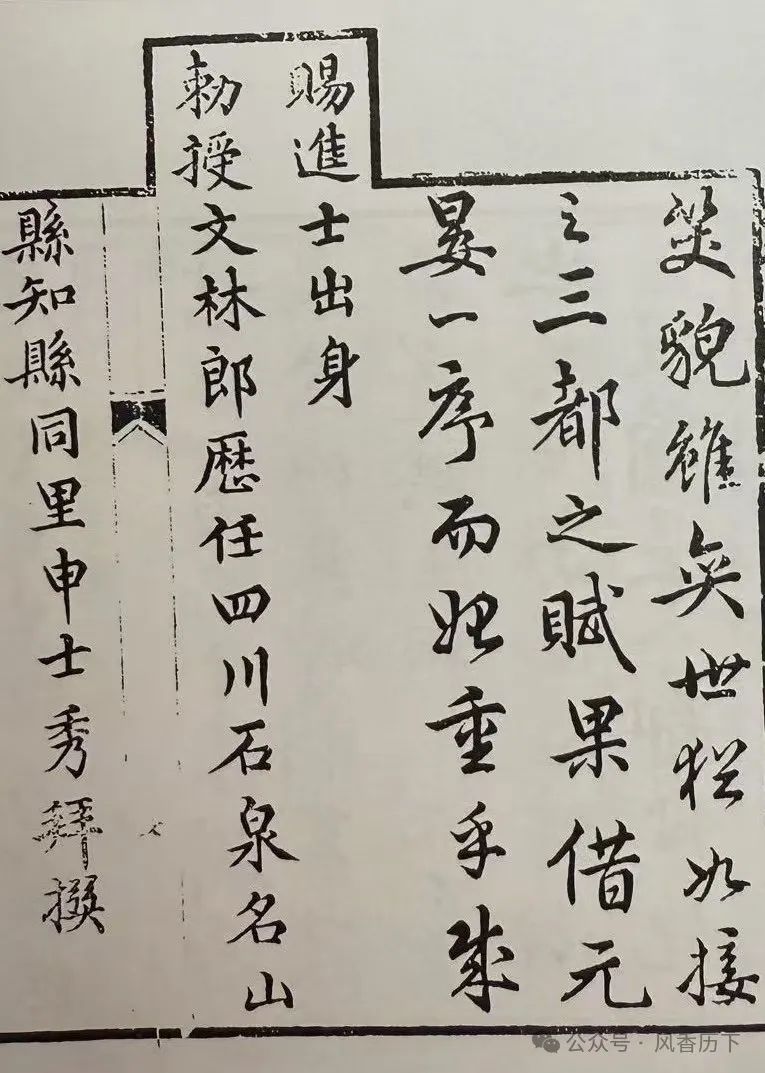 笑貌雖異世猶如接
之三都之賦果借元
晏一序而始重乎哉
賜進士出身
勅授文林郎歷任四川石泉名山
縣知縣同里申士秀拜撰
公众号 · 风香历下